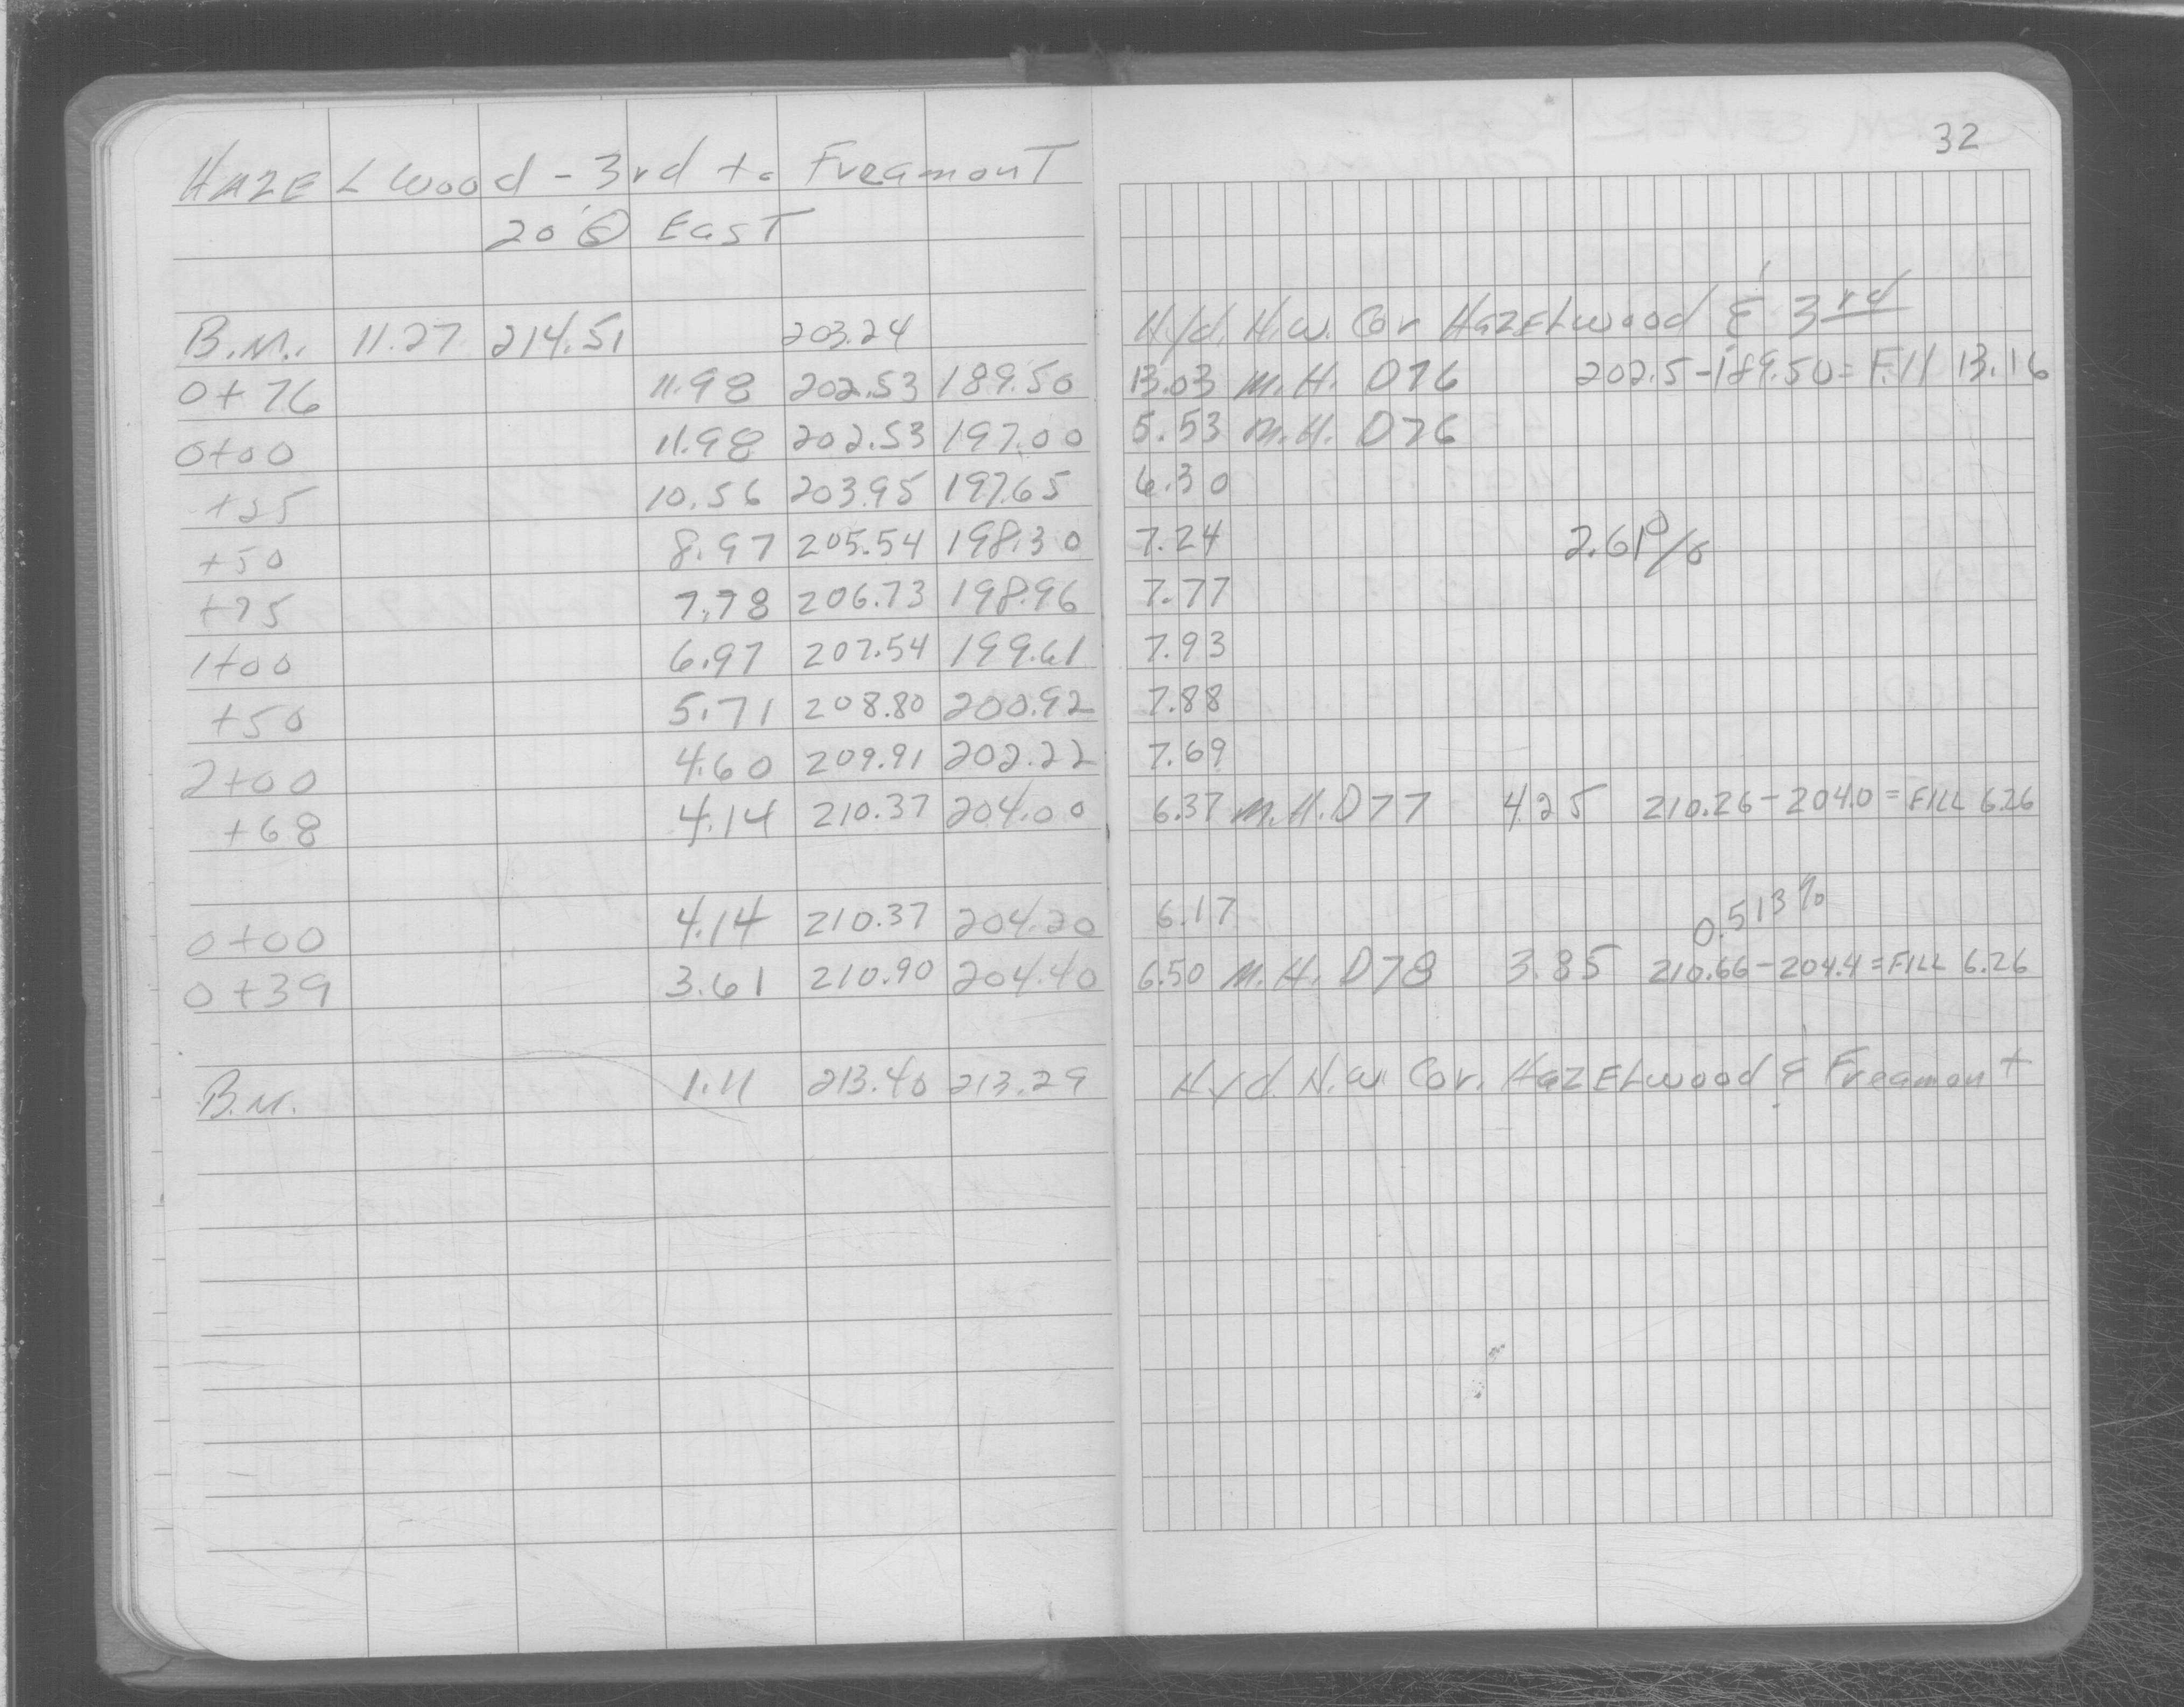 32
HAZELWood - 3rd to FreamonT
20' ⓢ EasT
B.M. 11.27 214.51 203.24 Hyd. N.W. Cor HAZELwood & 3rd
0+76 11.98 202.53 189.50 13.03 M.H. D76 202.5-189.50= Fill 13.16
0+00 11.98 202.53 197.00 5.53 M.H. D76
+25 10.56 203.95 197.65 6.30
+50 8.97 205.54 198.30 7.24 2.61%
+75 7.78 206.73 198.96 7.77
1+00 6.97 207.54 199.61 7.93
+50 5.71 208.80 200.92 7.88
2+00 4.60 209.91 202.22 7.69
+68 4.14 210.37 204.00 6.37 M.H. D77 4.25 210.26-204.0 = FILL 6.26
0+00 4.14 210.37 204.20 6.17 0.513%
0+39 3.61 210.90 204.40 6.50 M.H. D78 3.85 210.66-204.4=FILL 6.26
B.M. 1.11 213.40 213.29 Hyd. N.W. Cor. HAZELwood & Freamont